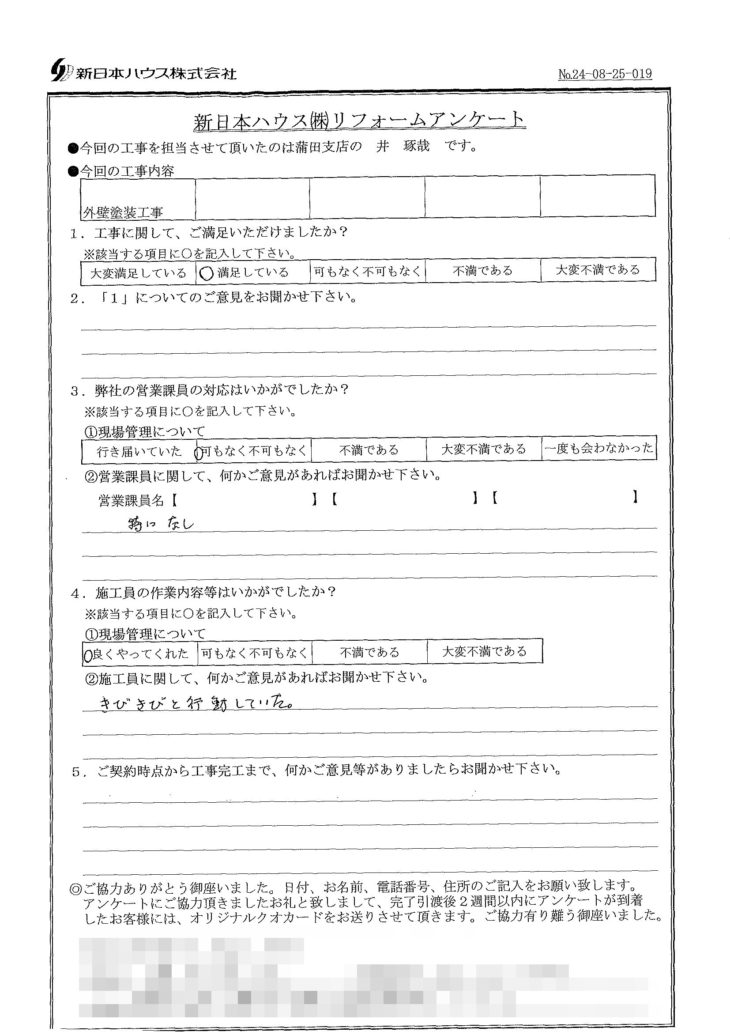 新日本ハウス株式会社
№24-08-25-019
新日本ハウス㈱リフォームアンケート
●今回の工事を担当させて頂いたのは蒲田支店の 井 琢哉 です。
●今回の工事内容
外壁塗装工事
1．工事に関して、ご満足いただけましたか？
※該当する項目に○を記入して下さい。
大変満足している ○ 満足している 可もなく不可もなく 不満である 大変不満である
2．「1」についてのご意見をお聞かせ下さい。
3．弊社の営業課員の対応はいかがでしたか？
※該当する項目に○を記入して下さい。
①現場管理について
行き届いていた ○可もなく不可もなく 不満である 大変不満である 一度も会わなかった
②営業課員に関して、何かご意見があればお聞かせ下さい。
営業課員名【 】【 】【 】
特に なし
4．施工員の作業内容等はいかがでしたか？
※該当する項目に○を記入して下さい。
①現場管理について
○良くやってくれた 可もなく不可もなく 不満である 大変不満である
②施工員に関して、何かご意見があればお聞かせ下さい。
きびきびと行動していた。
5．ご契約時点から工事完工まで、何かご意見等がありましたらお聞かせ下さい。
◎ご協力ありがとう御座いました。日付、お名前、電話番号、住所のご記入をお願い致します。
アンケートにご協力頂きましたお礼と致しまして、完了引渡後2週間以内にアンケートが到着
したお客様には、オリジナルクオカードをお送りさせて頂きます。ご協力有り難う御座いました。